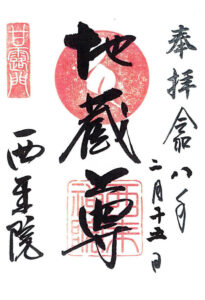 奉拝 令八年
二月十五日
地蔵尊
甘露門
西来院